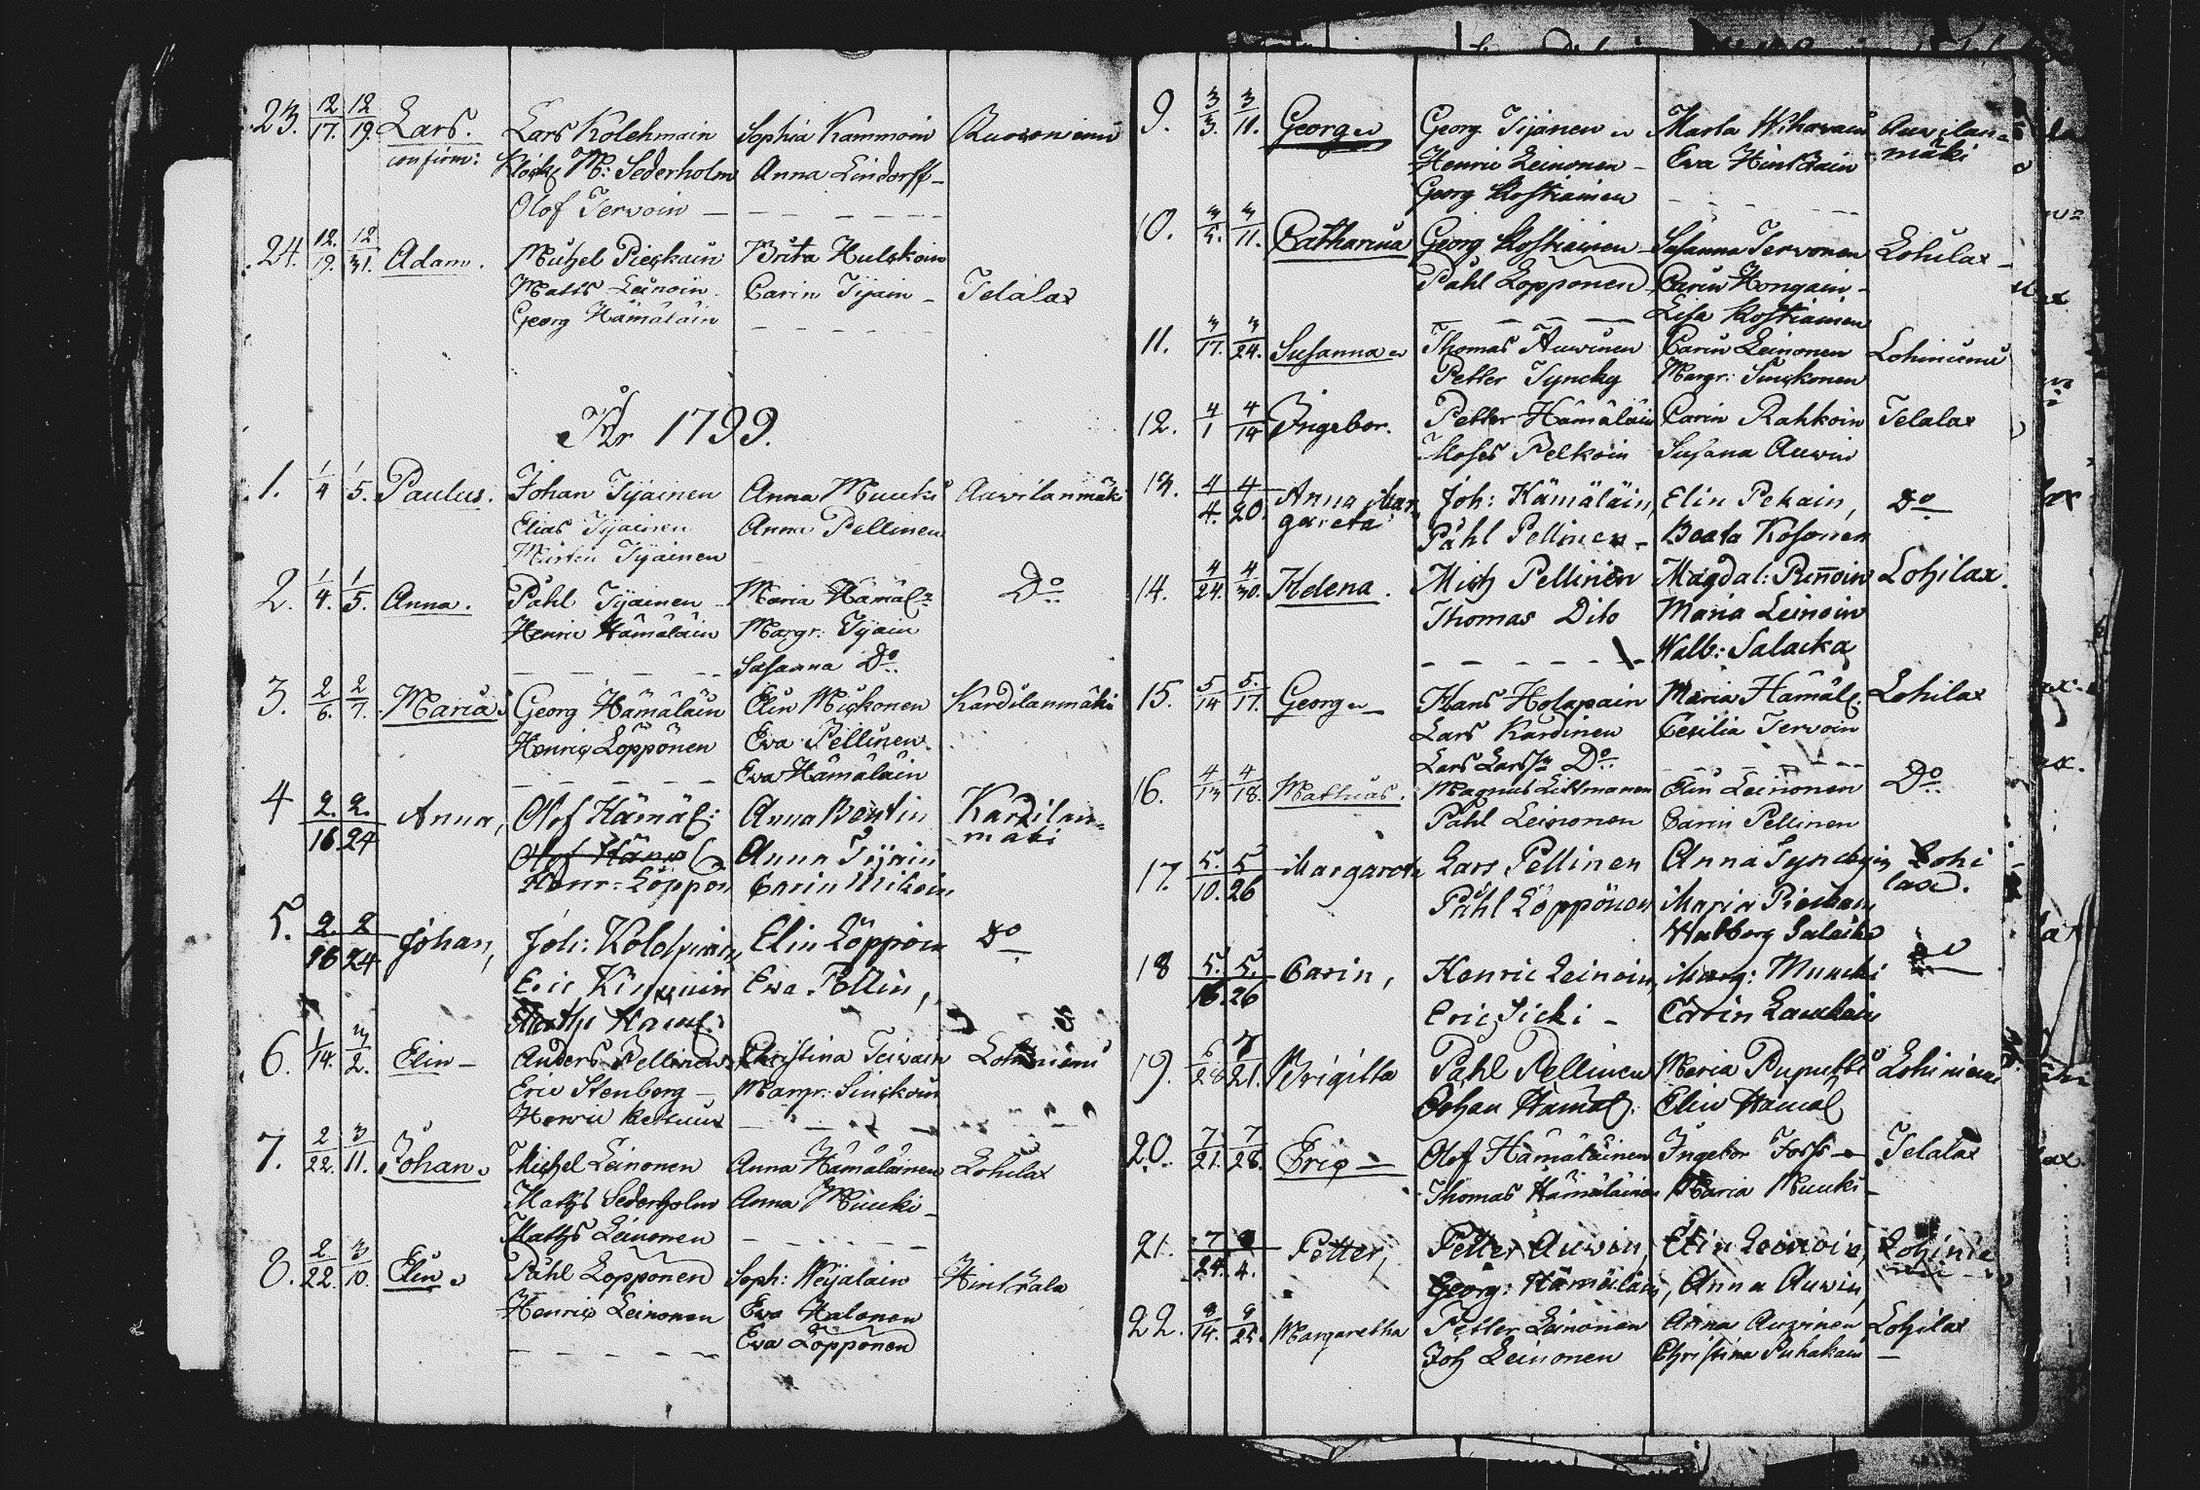 23. 12/17. 12/19. Lars. Lars Kolehmain Sophia Kammoin
confirm: M: Sederholm Anna Lindorff
Olof Tervoin
24. 12/19. 12/31. Adam. Michel Brita Hulskoin
Matts Leinoin Carin Tijain Telalax
Georg Hämäläin
År 1799.
1. 1/4 1/5. Paulus. Johan Tijainen Anna Muuki Auvilanmäki
Elias Tijainen Anna Pellinen
Mårten Tijainen
2. 1/4. 1/5. Anna. Påhl Tijainen Maria Hämäl:
Do
Henric Hämäläin Margr: Tijain
Susanna Do
3. 2/6. 2/7. Maria Georg Hämäläin Elin Miskonen Kardilanmäki
Henric Löppönen Eva Pellinen
Eva Hämäläin
4 2./16. 2./24 Anna, Olof Hämäl: Anna Bentin Kardilan=
mäki
Anna Tijain
Henr: Löppön Carin
5. 2/16 2/24 Johan, Joh: Elin Löppöin Do
Eric Ewa Pellin,
6. 1/14. 3/2. Elin Anders Pellinen Christina Lohiniemi
Eric Stenberg Margr: Sinskoin
Henric
7. 2/22. 3/11. Johan Michel Leinonen Anna Hämäläinen Lohilax
Matths Sederholm Anna Muuki
Matths Leinonen
8. 2/22. 3/10. Elin Påhl Lopponen Soph: Weijalain
Henric Leinonen Eva Halonen
Eva Lopponen
9. 3/3. 3/11. Georg Georg Tijanen Marta Auvilan=
Henric Leinonen Eva mäki
Georg Kostiainen
10. 3/5. 3/11. Catharina Georg Kostiainen Susanna Tervonen Lohilax
Påhl Lopponen Carin Hongain
Lisa Kostiainen
11. 3/17. 3/24. Susanna Thomas Auvinen Carin Leinonen Lohiniemi
Petter Tyncky Margr: Sinskonen
12. 4/1 4/14 Ingebor. Petter Hämäläin Carin Rahkoin Telalax
Moses Pelkoin Susana Auvin
13. 4/4. 4/20. Anna Mar Joh: Hämäläin, Elin Pekain, Do
gareta Påhl Pellinen Beata Kosonen
14. 4/24. 4/30. Helena. Mich Pellinen Magdal: Lohilax.
Thomas Dito Maria Leinoin
Walb: Salacka
15. 5/14 5./17. Georg Hans Holapain Maria Hämäl: Lohilax
Lars Kardinen Cecilia Tervoin
Lars Larss: Do
16. 4/13 4/18. Mathias. Magnus Littmanen Elin Leinonen Do
Påhl Leinonen Carin Pellinen
17. 5./10. 5/26 Margareta Lars Pellinen Anna Lohi
lax.
Påhl Löppönen Maria
Walborg Salacka
18 5./16. 5./26 Carin, Henric Leinoin, Marg: Muuki
Eric Sicki Carin
19. 6/28 7/21. Brigitta Påhl Pellinen Maria Puputti Lohiniemi
Johan Hämäl: Elin Hämäl
20. 7/21. 7/28. Eric Olof Hämäläinen Ingebor Forss Telalax
Thomas Hämäläinen Maria Muuki
21. 7/24. 4. Petter, Petter Auvoin, Elin Leinoin, Lohinie
Georg: Hämäläin, Anna Auvin,
22. 9/25. Margaretha Petter Leinonen Anna Auvinen Lohilax
Joh Leinonen Christina Puhakain